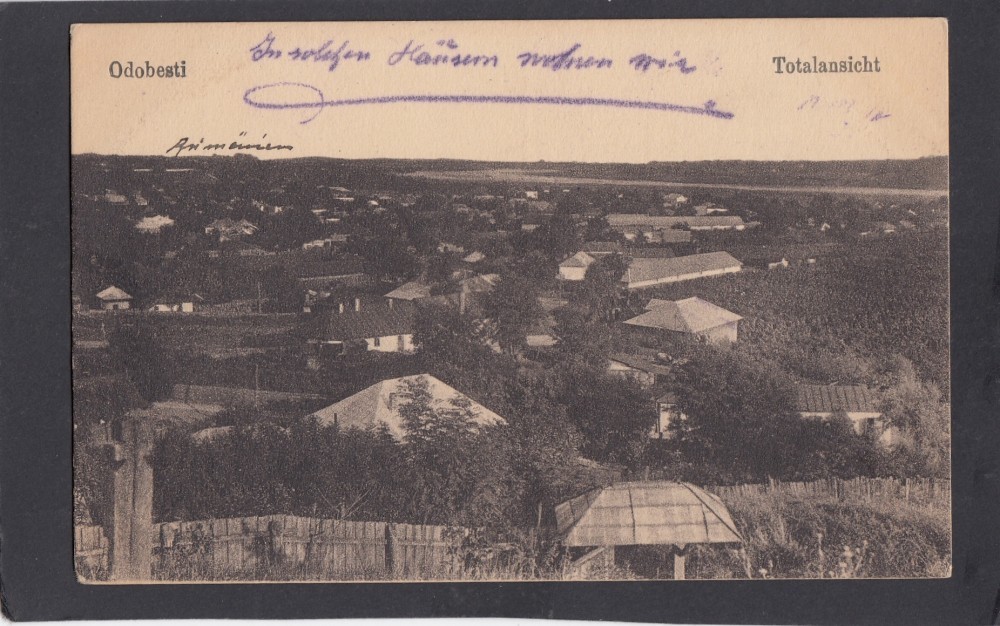 In solchen Häusern wohnen wir
Odobesti
Totalansicht
Rümänien